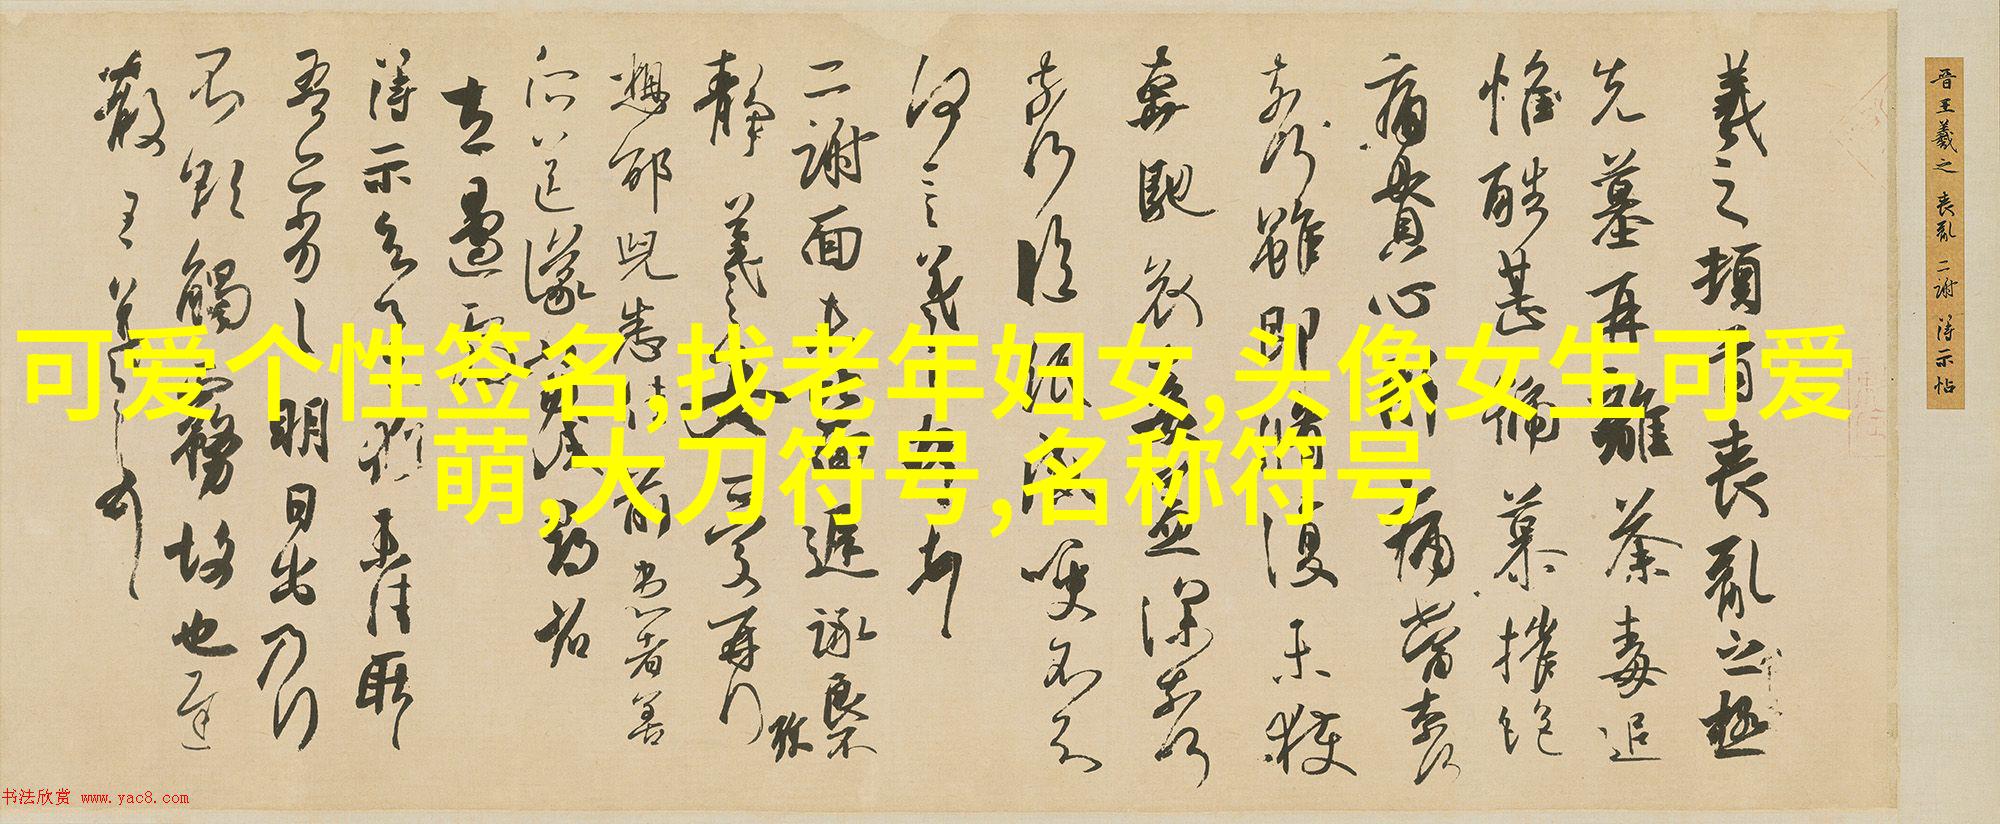 晋王羲之 喪亂 二謝 得示帖
羲之頓首喪亂之極
先墓再離荼毒追
惟酷甚號慕摧絕
痛貫心肝痛當奈何
奈何雖即脩復未獲
奔馳哀毒益深奈何
奈何臨紙感哽不知
何言羲之頓首頓首
二謝面未比面遲詠良不
靜羲之女愛再拜
想邵兒悉佳前患者善
所送議當試尋省
左邊劇
得示知足下猶未佳耿耿
吾亦劣劣明日出乃行
不欲觸霧故也遲
散王羲之頓首
可爱个性签名,找老年妇女,头像女生可爱
萌,大刀符号,名称符号
书法欣赏 www.yac8.com